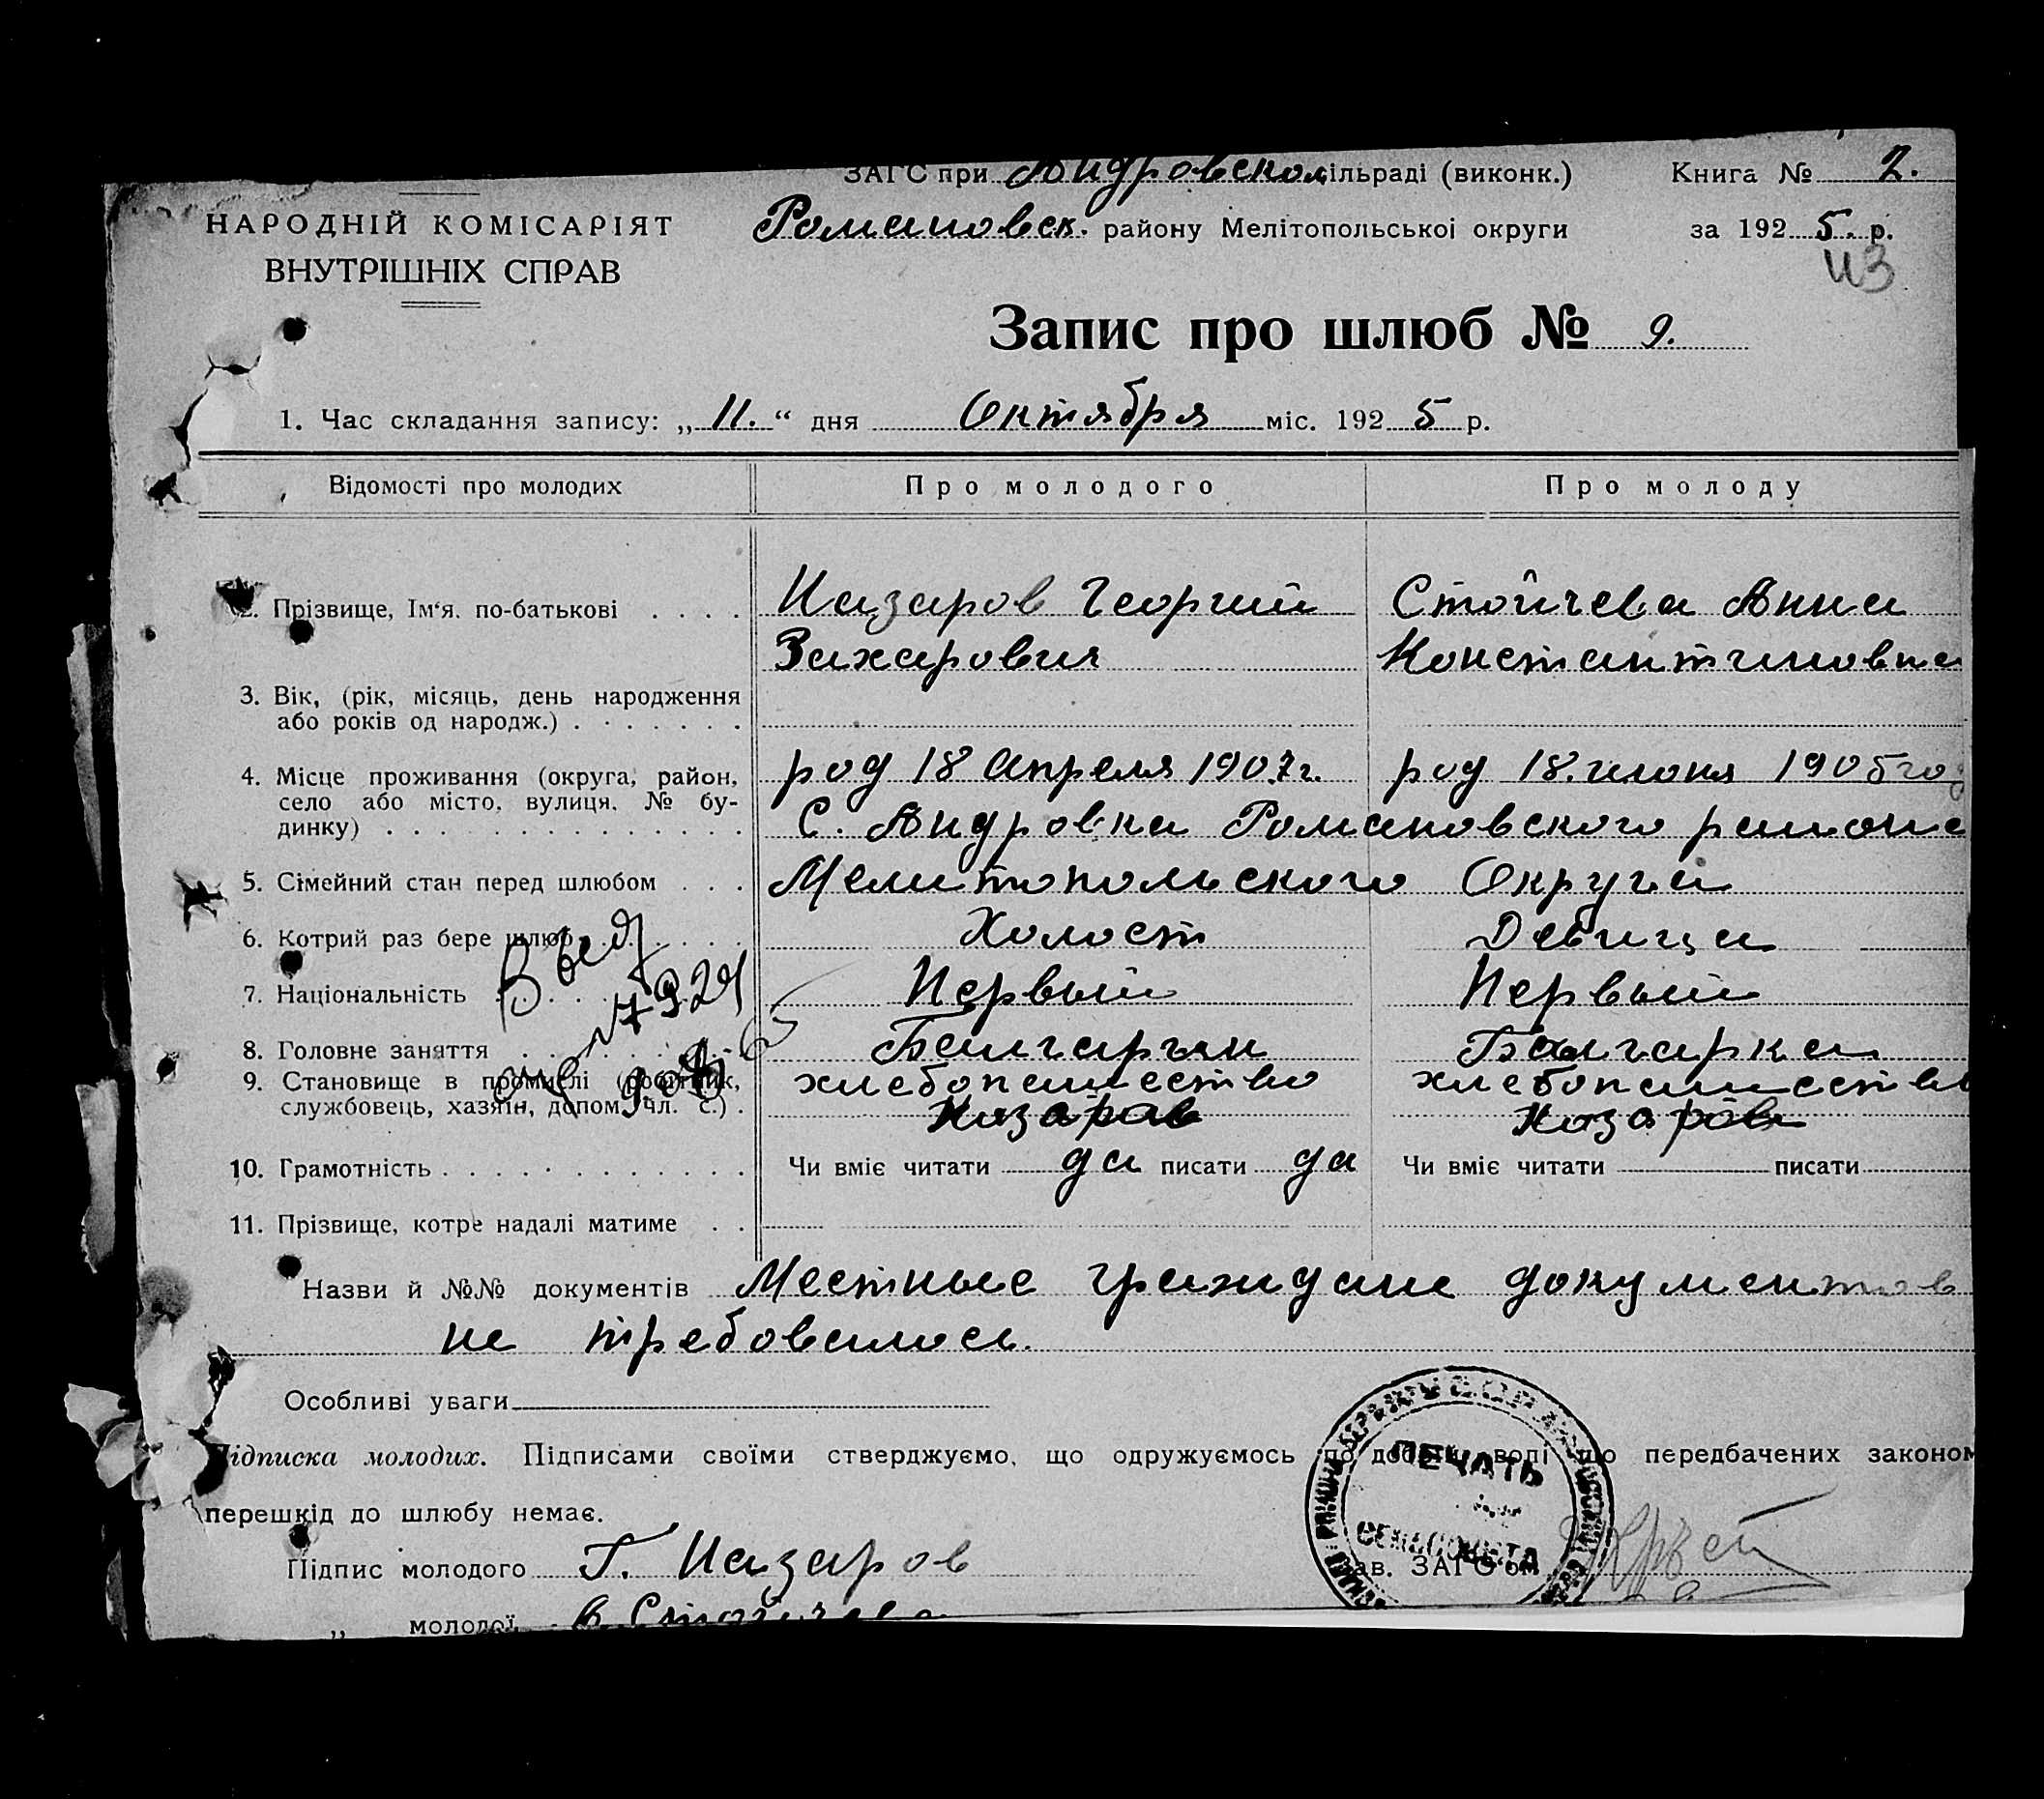 ЗАГС при Андровском сільраді (виконк.) Книга № 2.
НАРОДНІЙ КОМІСАРІЯТ Романовск. району Мелітопольскої округи за 1925. р.
ВНУТРІШНІХ СПРАВ
Запис про шлюб № 9.
1. Час складання запису: „11.“ дня Октября міс. 1925 р.
Відомості про молодих Про молодого Про молоду
2. Прізвище, Ім'я, по-батькові Назаров Георгий Стойчева Анна
Захарович Константиновна
3. Вік, (рік, місяць, день народження
або років од народж.)
4. Місце проживання (округа, район, род 18 Апреля 1907 г. род 18. июня 1905 год
село або місто, вулиця, № бу-
динку) С. Андровка Романовского района
5. Сімейний стан перед шлюбом Мелитопольского Округи
6. Котрий раз бере шлюб Холост Девица
7. Національність Первый Первый
8. Головне заняття Балгарьин Балгарка
9. Становище в промислі (робітник, хлебопашество хлебопашество
службовець, хазяїн, допом. чл. с.) Назаров Назаров
10. Грамотність Чи вміє читати да писати да Чи вміє читати писати
11. Прізвище, котре надалі матиме
Назви й №№ документів Местные граждане документов
не требовалось.
Особливі уваги
Підписка молодих. Підписами своїми стверджуємо, що одружуємось по добрій волі що передбачених законом
перешкід до шлюбу немає.
ПЕЧАТЬ
СЕЛЬСОВЕТА
Підпис молодого Г. Назаров Зав. ЗАГС'ом
„ молодої Стойчева